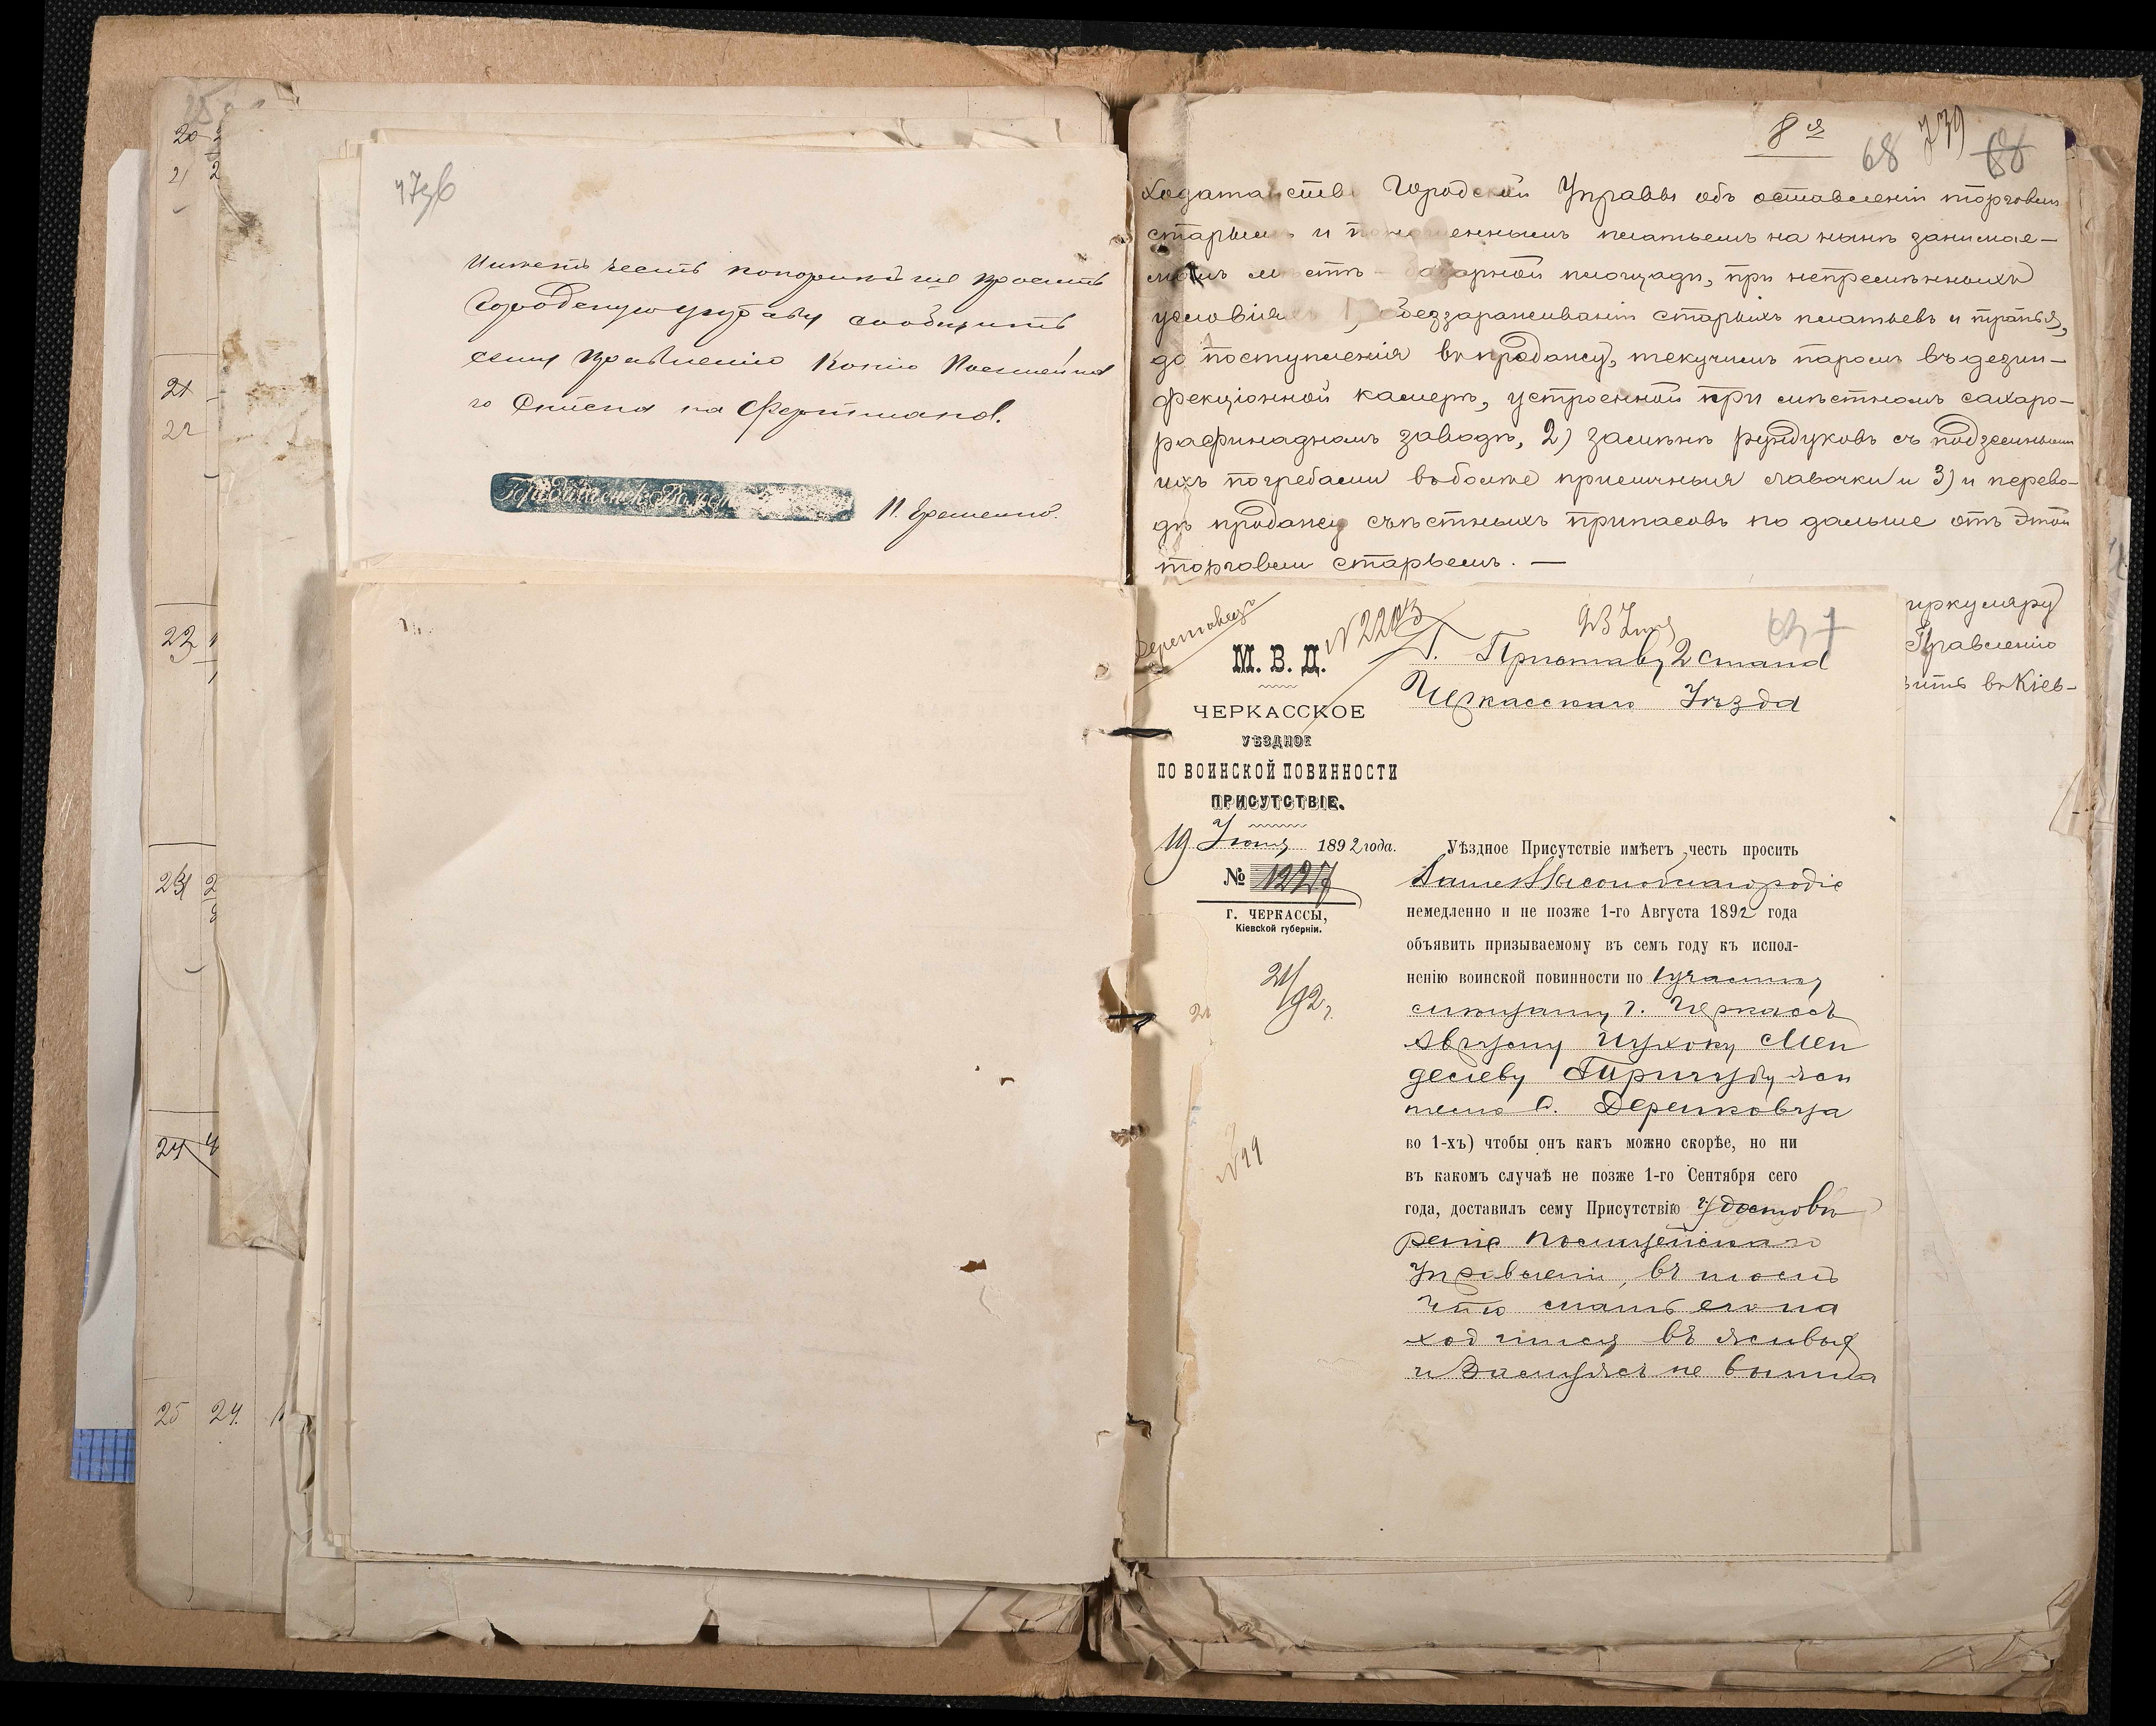 20
21
21
22
23
24
25 24.
Имѣетъ честь покорнѣйше просить
Городскую управу сообщить
сему Правленію Копію Посемейна
го Списка на
П. Еременко.
8я
68 739 68
Ходатайство Городской Управы объ оставленіи торговли
старьемъ и поношеннымъ платьемъ на нынѣ занимае-
момъ мѣстѣ - базарной площади, при непремѣнныхъ
условіяхъ 1, обеззараживаніи старыхъ платьевъ и тряпья,
до поступленія въ продажу, текучимъ паромъ въ дезин-
фекціонной камерѣ, устроенной при мѣстномъ сахаро-
рафинадномъ заводѣ, 2) замѣнѣ рундуковъ съ подземными
ихъ погребами въ болѣе приличныя лавочки и 3) и перево-
дѣ продажи съѣстныхъ припасовъ по дальше отъ этой
торговли старьемъ. —
иркуляру
Правленію
вить въ Кіев-
Деренковец
№ 2203
23 Іюня
Г. Приставу 2 стана
Черкасскаго Уѣзда
М. В. Д.
ЧЕРКАССКОЕ
УѢЗДНОЕ
ПО ВОИНСКОЙ ПОВИННОСТИ
ПРИСУТСТВІЕ.
19 Іюня 1892 года.
№ 1227
Г. ЧЕРКАССЫ,
Кіевской губерніи.
21/92 г.
№ 99
Уѣздное Присутствіе имѣетъ честь просить
Ваше Высокоблагородіе
немедленно и не позже 1-го Августа 1892 года
объявить призываемому въ семъ году къ испол-
ненію воинской повинности по 1 участку
г. Черкассъ
Мен
делеву жи
телю с. Деренковца
во 1-хъ) чтобы онъ какъ можно скорѣе, но ни
въ какомъ случаѣ не позже 1-го Сентября сего
года, доставилъ сему Присутствію удостовѣ
реніе Полицейскаго
Управленія, въ томъ
что мать его на
ходится въ живых
и замужъ не вышла